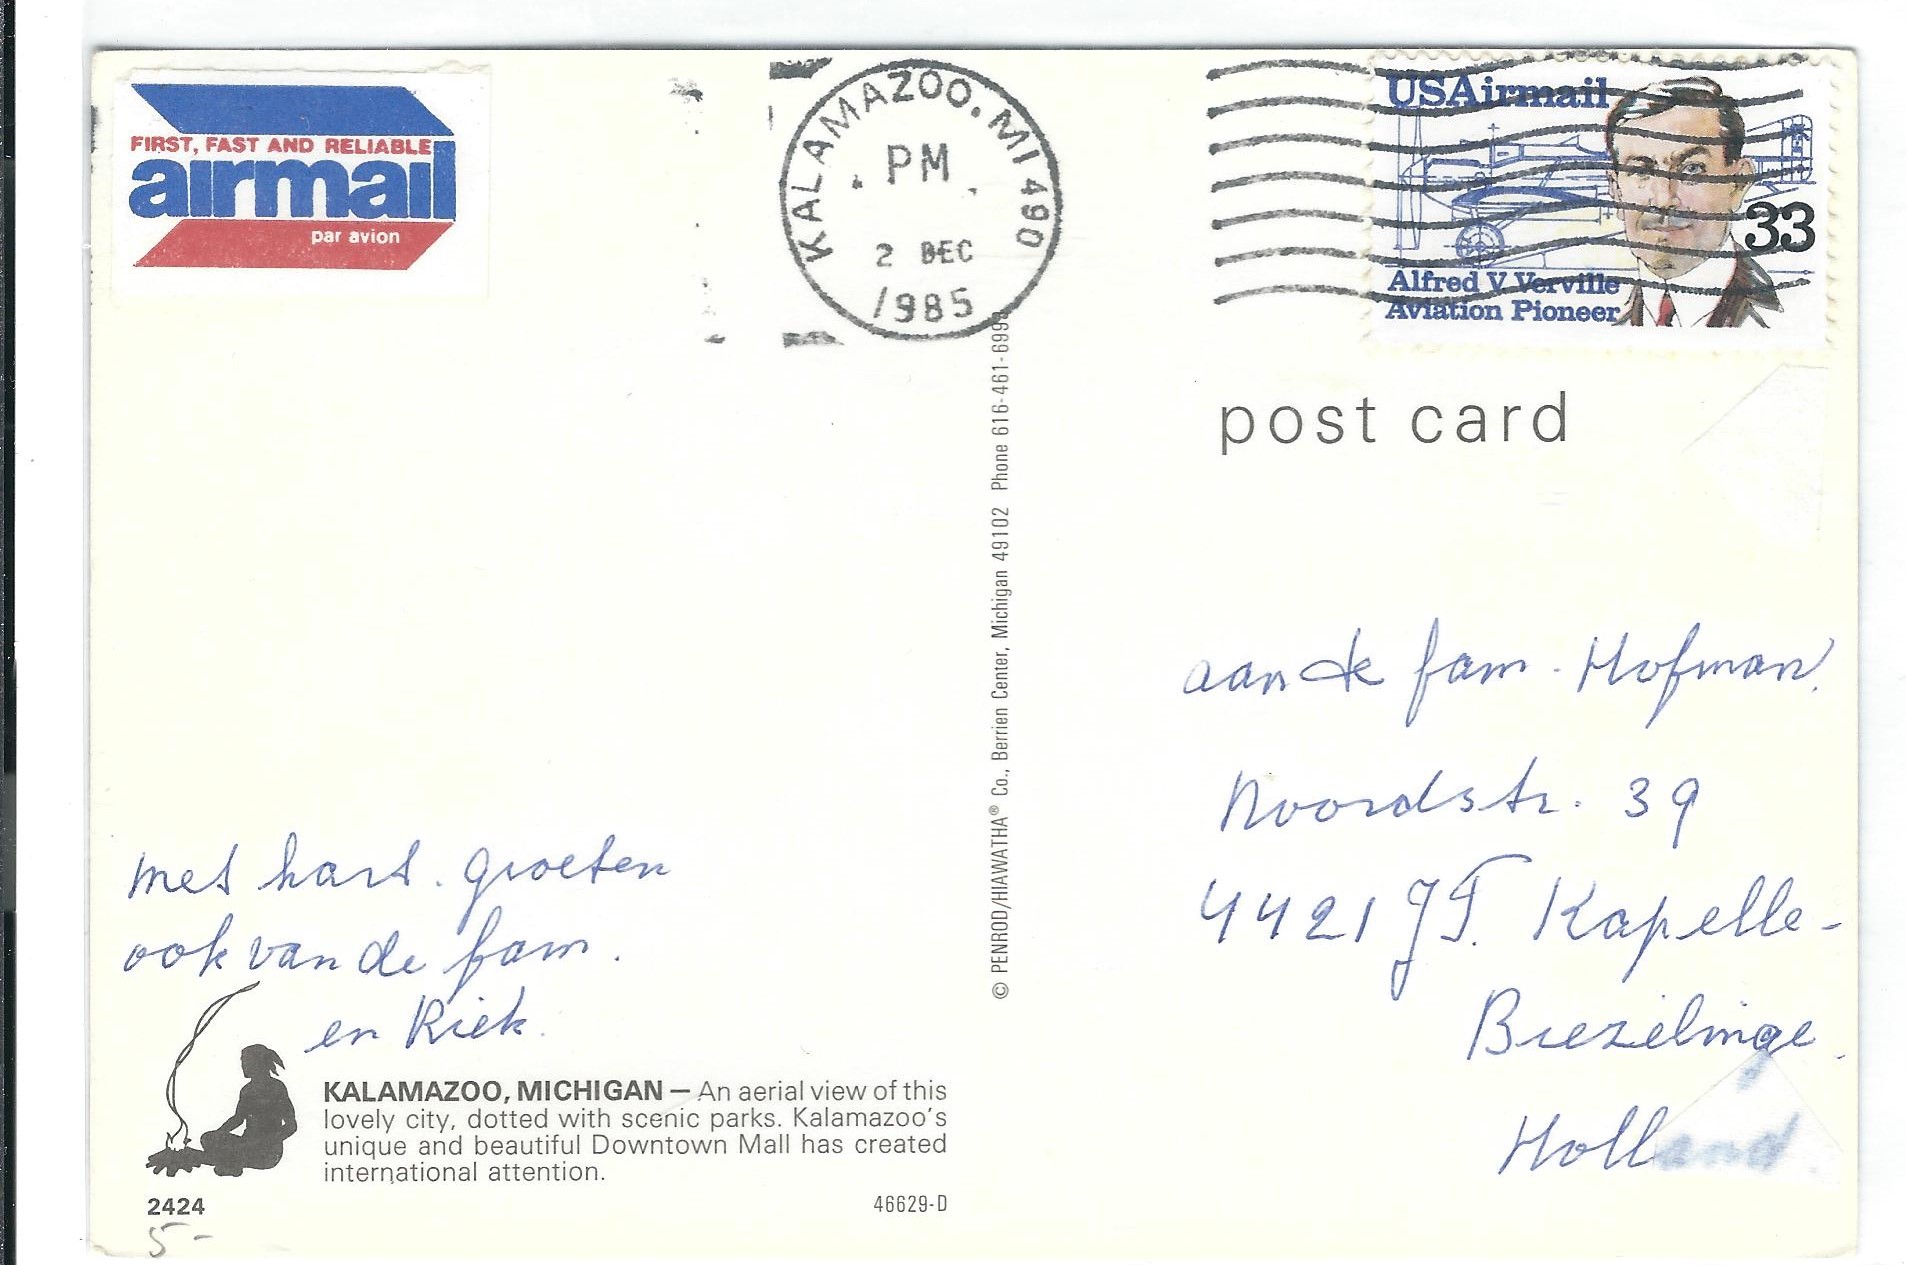 FIRST, FAST AND RELIABLE
airmail
par avion
KALAMAZOO, MI 490
PM
2 DEC
1985
USAirmail
33
Alfred V. Verville
Aviation Pioneer
post card
aan de fam. Hofman.
Noordstr. 39
4421 JT. Kapelle-
Biezelinge.
Holland.
met hart. groeten
ook van de fam.
en Riek.
© PENROD/HIAWATHA® Co., Berrien Center, Michigan 49102 Phone 616-461-6993
KALAMAZOO, MICHIGAN — An aerial view of this
lovely city, dotted with scenic parks. Kalamazoo's
unique and beautiful Downtown Mall has created
international attention.
2424
46629-D
5-